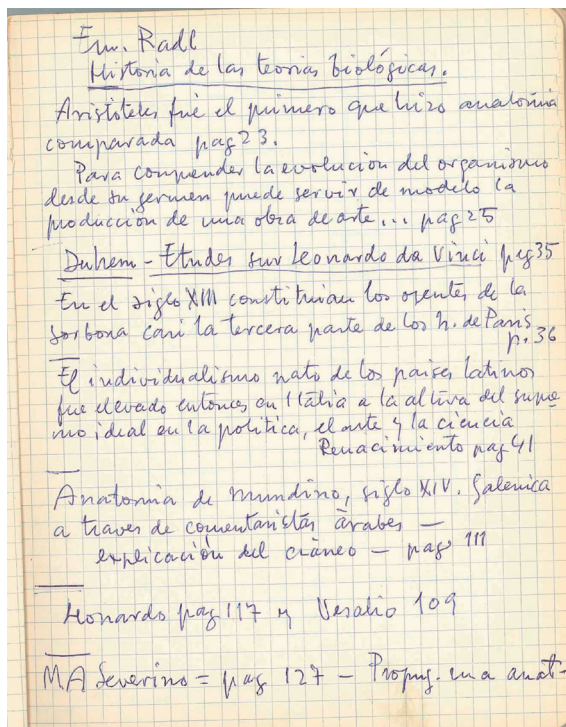 Em. Radl
Historia de las teorias biológicas.
Aristóteles fué el primero que hizo anatomia
comparada pag 23.
Para comprender la evolución del organismo
desde su germen puede servir de modelo la
producción de una obra de arte... pag 25
Duhem - Etudes sur Leonardo da Vinci pag 35
En el siglo XIII constituian los oyentes de la
Sorbona casi la tercera parte de los h. de Paris
p. 36
El individualismo nato de los paises latinos
fue elevado entonces en Italia a la altura del supre
mo ideal en la politica, el arte y la ciencia
Renacimiento pag 41
Anatomia de Mundino, siglo XIV. Galenica
a traves de comentaristas árabes —
explicación del cráneo — pag 111
Leonardo pag 117 y Vesalio 109
MA Severino = pag 127 — Propug. una anat-